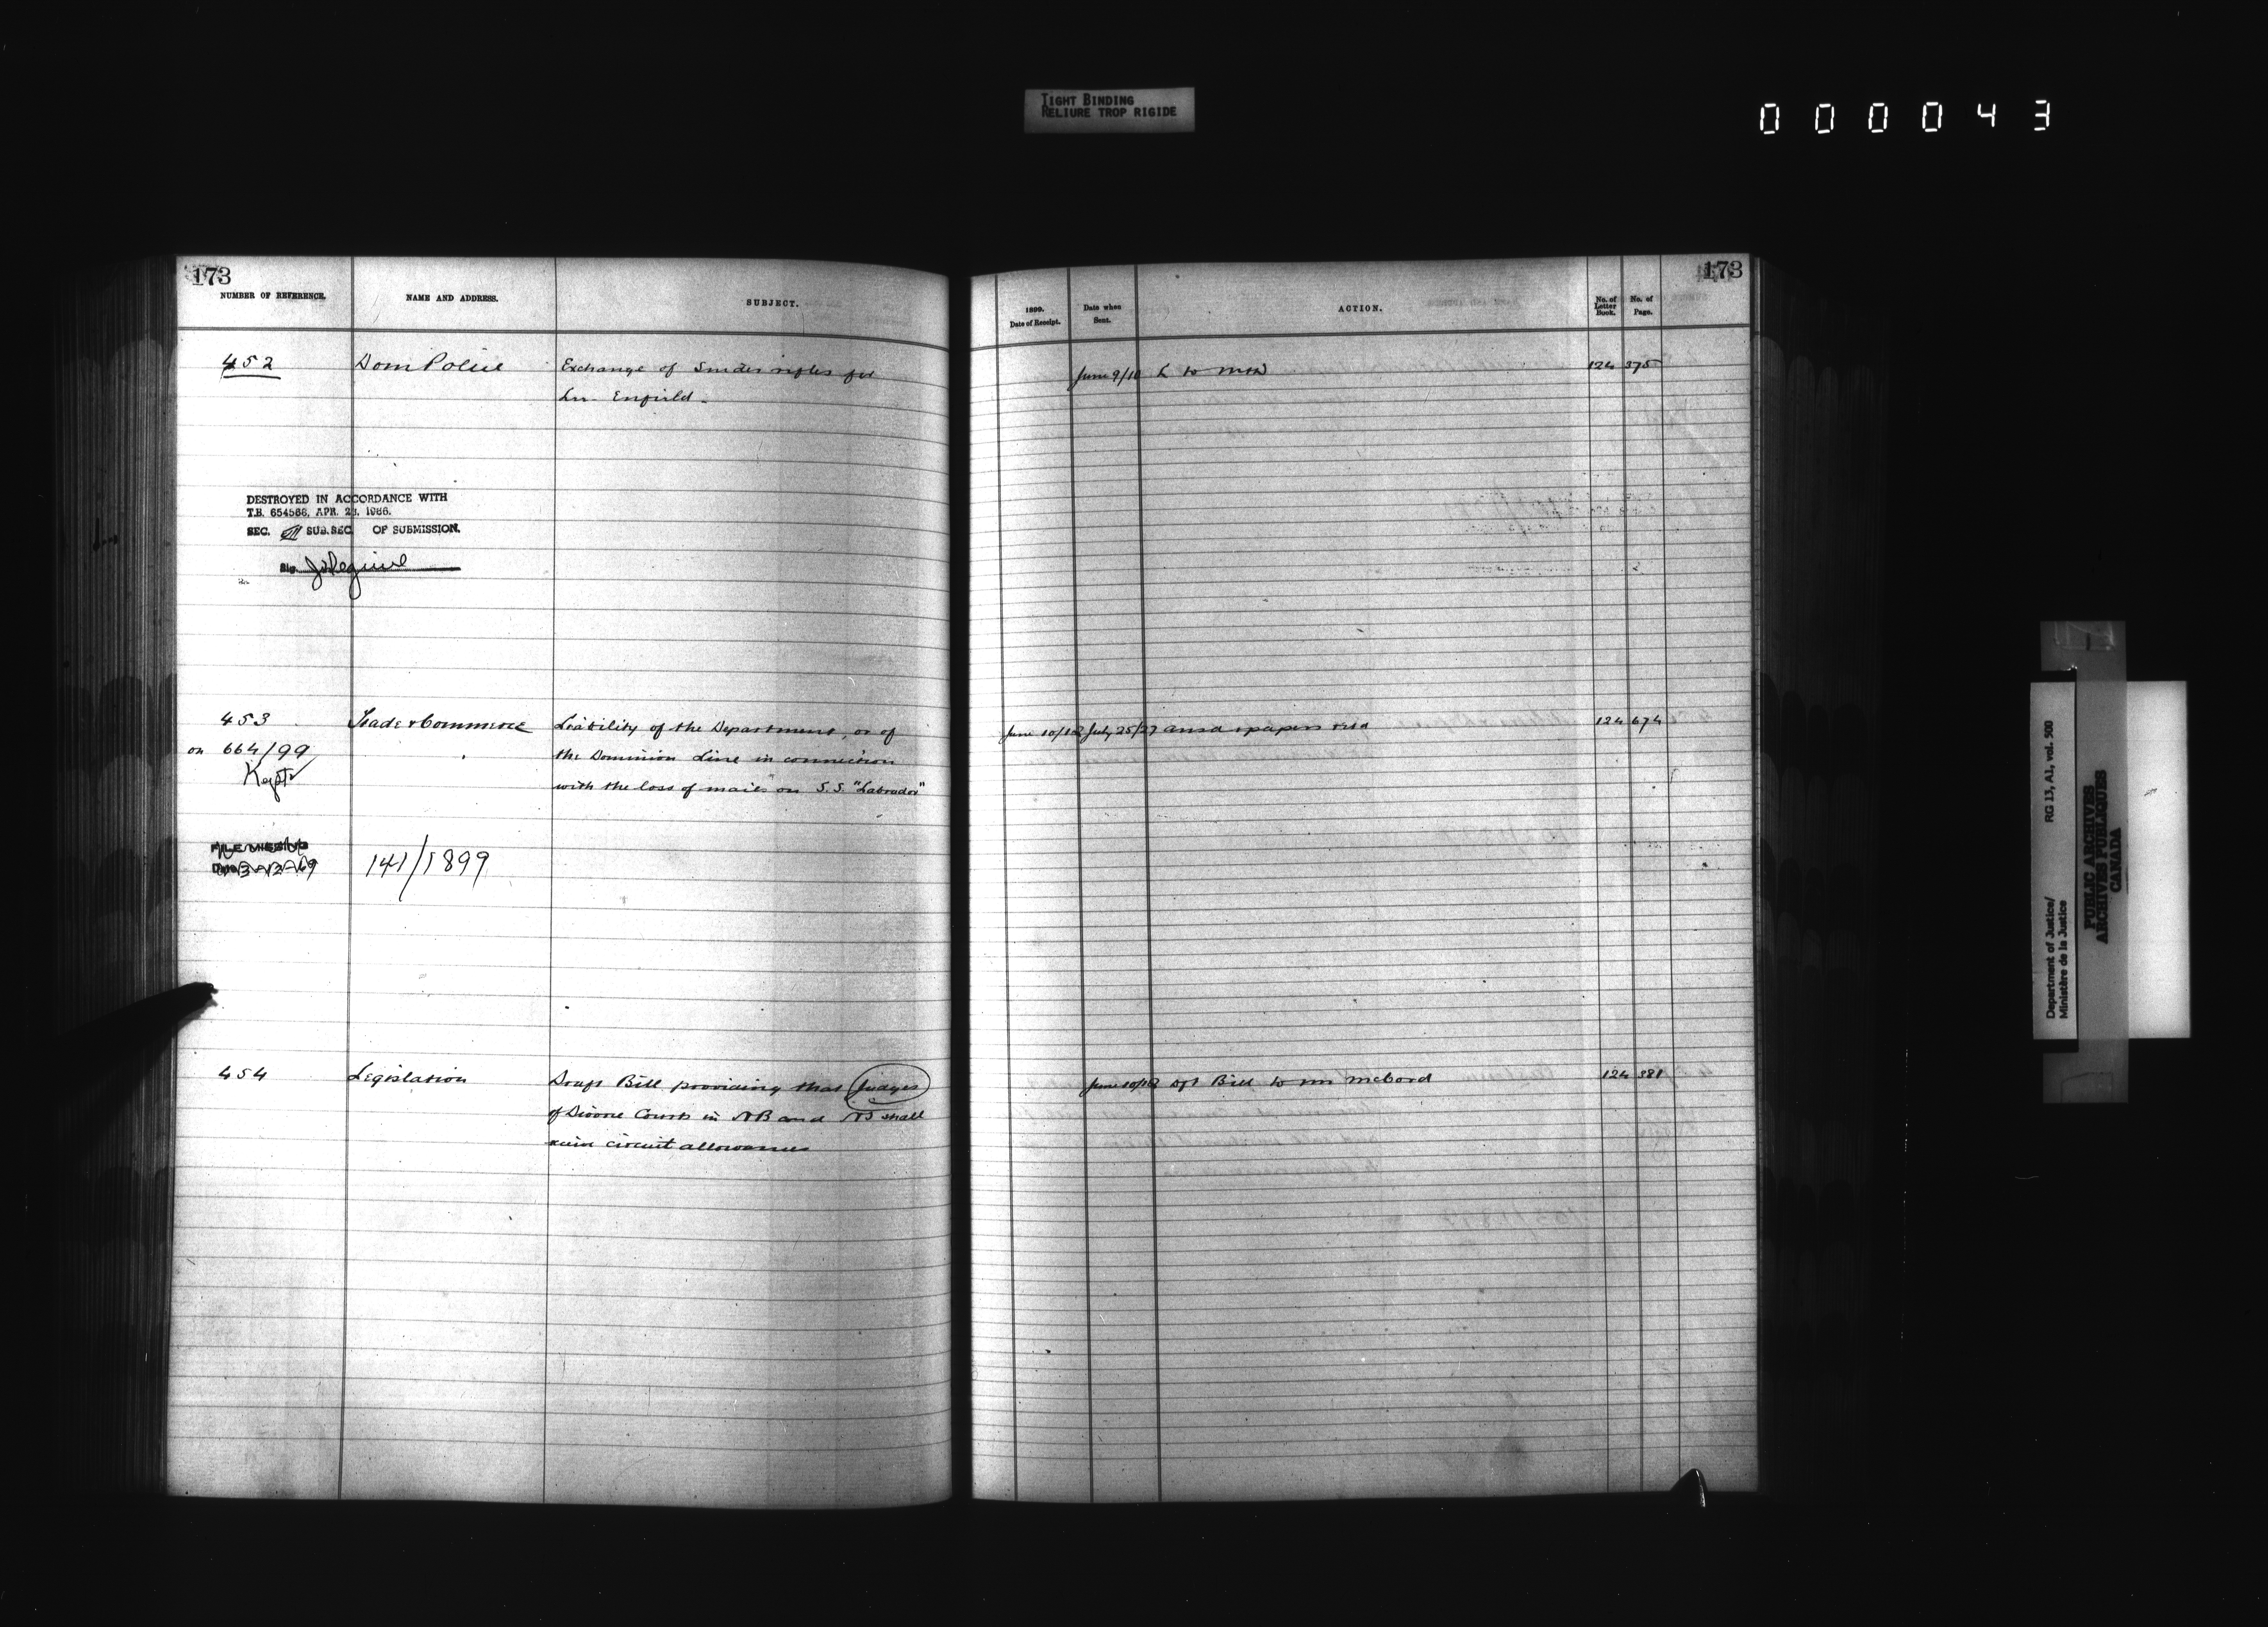 TIGHT BINDING
RELIURE TROP RIGIDE
000043
173
NUMBER OF REFERENCE.
NAME AND ADDRESS.
SUBJECT.
452
Dom Police
Exchange of Snider rifles for
Lee-Enfield-
DESTROYED IN ACCORDANCE WITH
T.B. 654566, APR. 28, 1966.
SEC. SUB.SEC. OF SUBMISSION.
Sig.
453
Trade & Commerce
Liability of the Department, or of
on 664/99
the Dominion Line in connection
Kept
with the loss of mails on S.S. "Labrador"
FILE MISSING
141/1899
454
Legislation
Draft Bill providing that Judges
of Divorce Courts in NB and NS shall
receive circuit allowances
173
1899.
Date of Receipt.
Date when
Sent.
ACTION.
No. of
Letter
Book.
No. of
Page.
June 9/10
L to
124
375
June 10/12
July 25/27
ansd & papers retd
124
674
June 10/12
Dft Bill to Mr McCord
124
381
Department of Justice/
Ministère de la Justice
RG 13, A1, vol. 500
PUBLIC ARCHIVES
ARCHIVES PUBLIQUES
CANADA